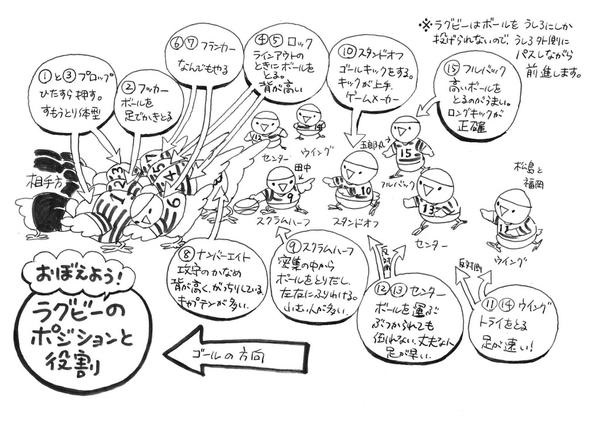 ※ラグビーはボールをうしろにしか
投げられないので、うしろ外側に
パスしながら
前進します。
①と③プロップ
ひたすら押す。
すもうとり体型
②フッカー
ボールを
足でかきとる
⑥⑦フランカー
なんでもやる
④⑤ロック
ラインアウトの
ときにボールを
とる。
背が高い
⑩スタンドオフ
ゴールキックをする。
キックが上手
ゲームメーカー
⑮フルバック
高いボールを
とるのがうまい。
ロングキックが
正確
相手方
1
2
3
4
5
7
6
8
12
センター
14
ウイング
五郎丸
15
フルバック
田中
9
スクラムハーフ
10
スタンドオフ
13
センター
松島と
福岡
11
ウイング
⑧ナンバーエイト
攻守のかなめ
背が高く、がっちりしている
キャプテンが多い。
⑨スクラムハーフ
密集の中から
ボールをとりだし、
左右にふりわける。
小さい人が多い。
反対側
⑫⑬センター
ボールを運ぶ
ぶつかられても
倒れない、丈夫な人
足が早い。
反対側
⑪⑭ウイング
トライをとる
足が速い!
おぼえよう!
ラグビーの
ポジションと
役割
ゴールの方向